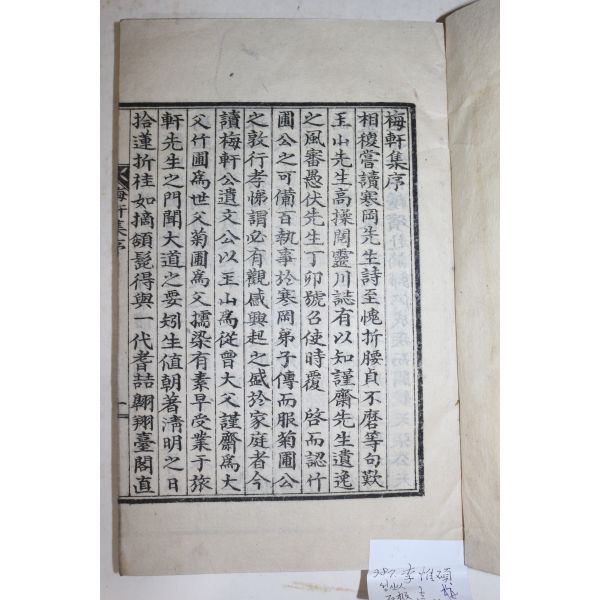 梅軒集序
相稷嘗讀寒岡先生詩至愧折腰貞不磨等句歎
王山先生高操閱靈川誌有以知謹齋先生遺逸
之風審愚伏先生丁卯號召使時覆 啓而認竹
圃公之可備百執事於寒岡弟子傳而服菊圃公
之敦行孝悌謂必有觀感興起之盛於家庭者今
讀梅軒公遺文公以王山爲從曾大父謹齋爲大
父竹圃爲世父菊圃爲父擩染有素早受業于旅
軒先生之門聞大道之要矧生値朝著淸明之日
拾蓮折桂如摘頷髭得與一代耆喆翺翔臺閣直
梅軒集序
一
987. 李惟碩